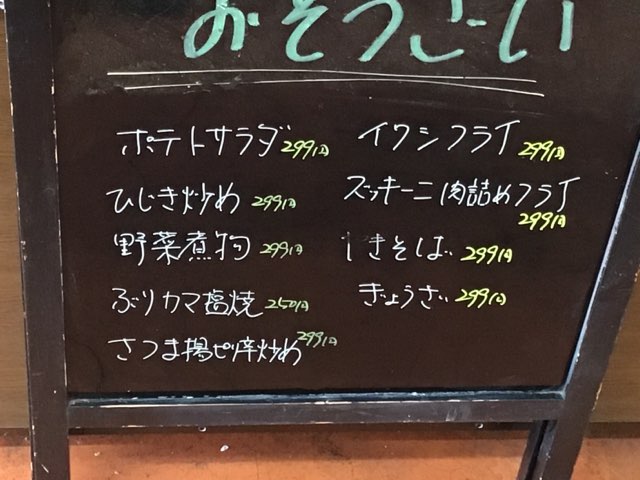 おそうざい
ポテトサラダ 299円
ひじき炒め 299円
野菜煮物 299円
ぶりカマ塩焼 250円
さつま揚ピリ辛炒め 299円
イワシフライ 299円
ズッキーニ肉詰めフライ
299円
きそば 299円
ぎょうざ 299円